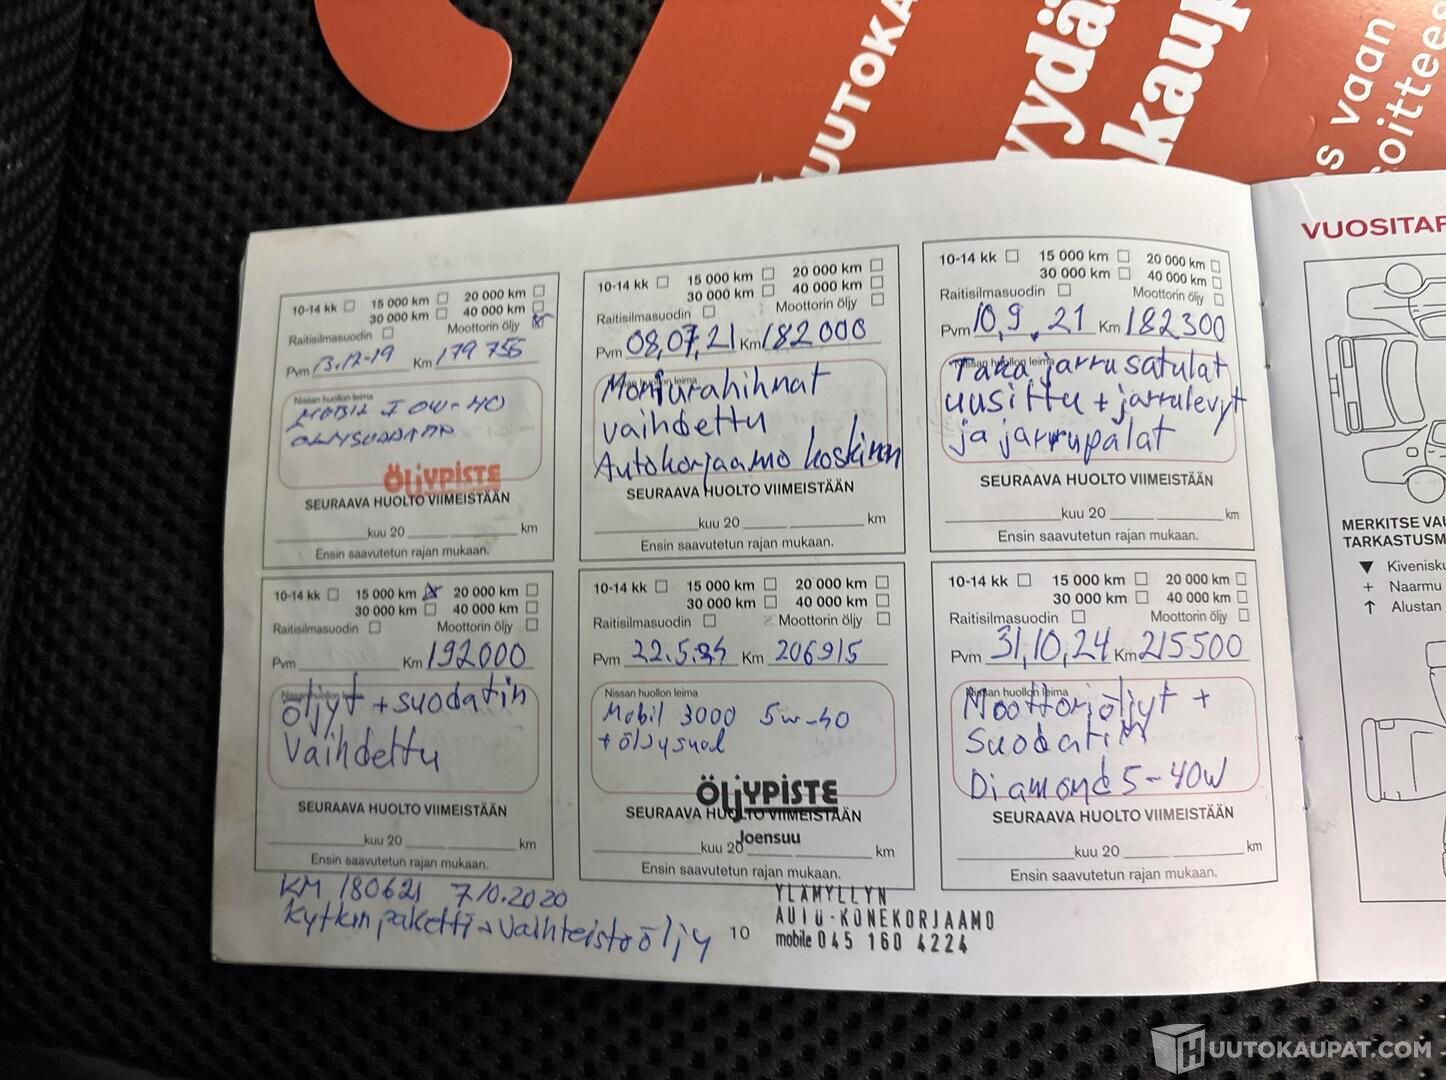 UUTOKA
yydää
kaup
s vaan
soittees
10-14 kk 15 000 km 20 000 km
30 000 km 40 000 km
Raitisilmasuodin Moottorin öljy
Pvm 13.12-19 Km 179 755
Nissan huollon leima
ÖLJYPISTE
SEURAAVA HUOLTO VIIMEISTÄÄN
kuu 20 km
Ensin saavutetun rajan mukaan.
10-14 kk 15 000 km 20 000 km
30 000 km 40 000 km
Raitisilmasuodin Moottorin öljy
Pvm 08,07,21 Km 182 000
Nissan huollon leima
Moniurahihnat
vaihdettu
Autokorjaamo koskinen
SEURAAVA HUOLTO VIIMEISTÄÄN
kuu 20 km
Ensin saavutetun rajan mukaan.
10-14 kk 15 000 km 20 000 km
30 000 km 40 000 km
Raitisilmasuodin Moottorin öljy
Pvm 10,9,21 Km 182300
Nissan huollon leima
Taka jarrusatulat
uusittu + jarrulevyt
ja jarrupalat
SEURAAVA HUOLTO VIIMEISTÄÄN
kuu 20 km
Ensin saavutetun rajan mukaan.
10-14 kk 15 000 km 20 000 km
30 000 km 40 000 km
Raitisilmasuodin Moottorin öljy
Pvm Km 192000
Nissan huollon leima
öljyt + suodatin
vaihdettu
SEURAAVA HUOLTO VIIMEISTÄÄN
kuu 20 km
Ensin saavutetun rajan mukaan.
10-14 kk 15 000 km 20 000 km
30 000 km 40 000 km
Raitisilmasuodin Moottorin öljy
Pvm 22.5. Km 206915
Nissan huollon leima
Mobil 3000 5w-40
+ öljysuod
ÖLJYPISTE
SEURAAVA HUOLTO VIIMEISTÄÄN
Joensuu
kuu 20 km
Ensin saavutetun rajan mukaan.
10-14 kk 15 000 km 20 000 km
30 000 km 40 000 km
Raitisilmasuodin Moottorin öljy
Pvm 31,10,24 Km 215500
Nissan huollon leima
Moottoriöljyt +
suodatin
Diamond 5-40W
SEURAAVA HUOLTO VIIMEISTÄÄN
kuu 20 km
Ensin saavutetun rajan mukaan.
KM 180621 7.10.2020
Kytkinpaketti + vaihteistoöljy
10
YLÄMYLLYN
AUTO-KONEKORJAAMO
mobile 045 160 4224
VUOSITAR
MERKITSE VAU
TARKASTUSM
▼ Kivenisku
+ Naarmu
↑ Alustan
HUUTOKAUPAT.COM